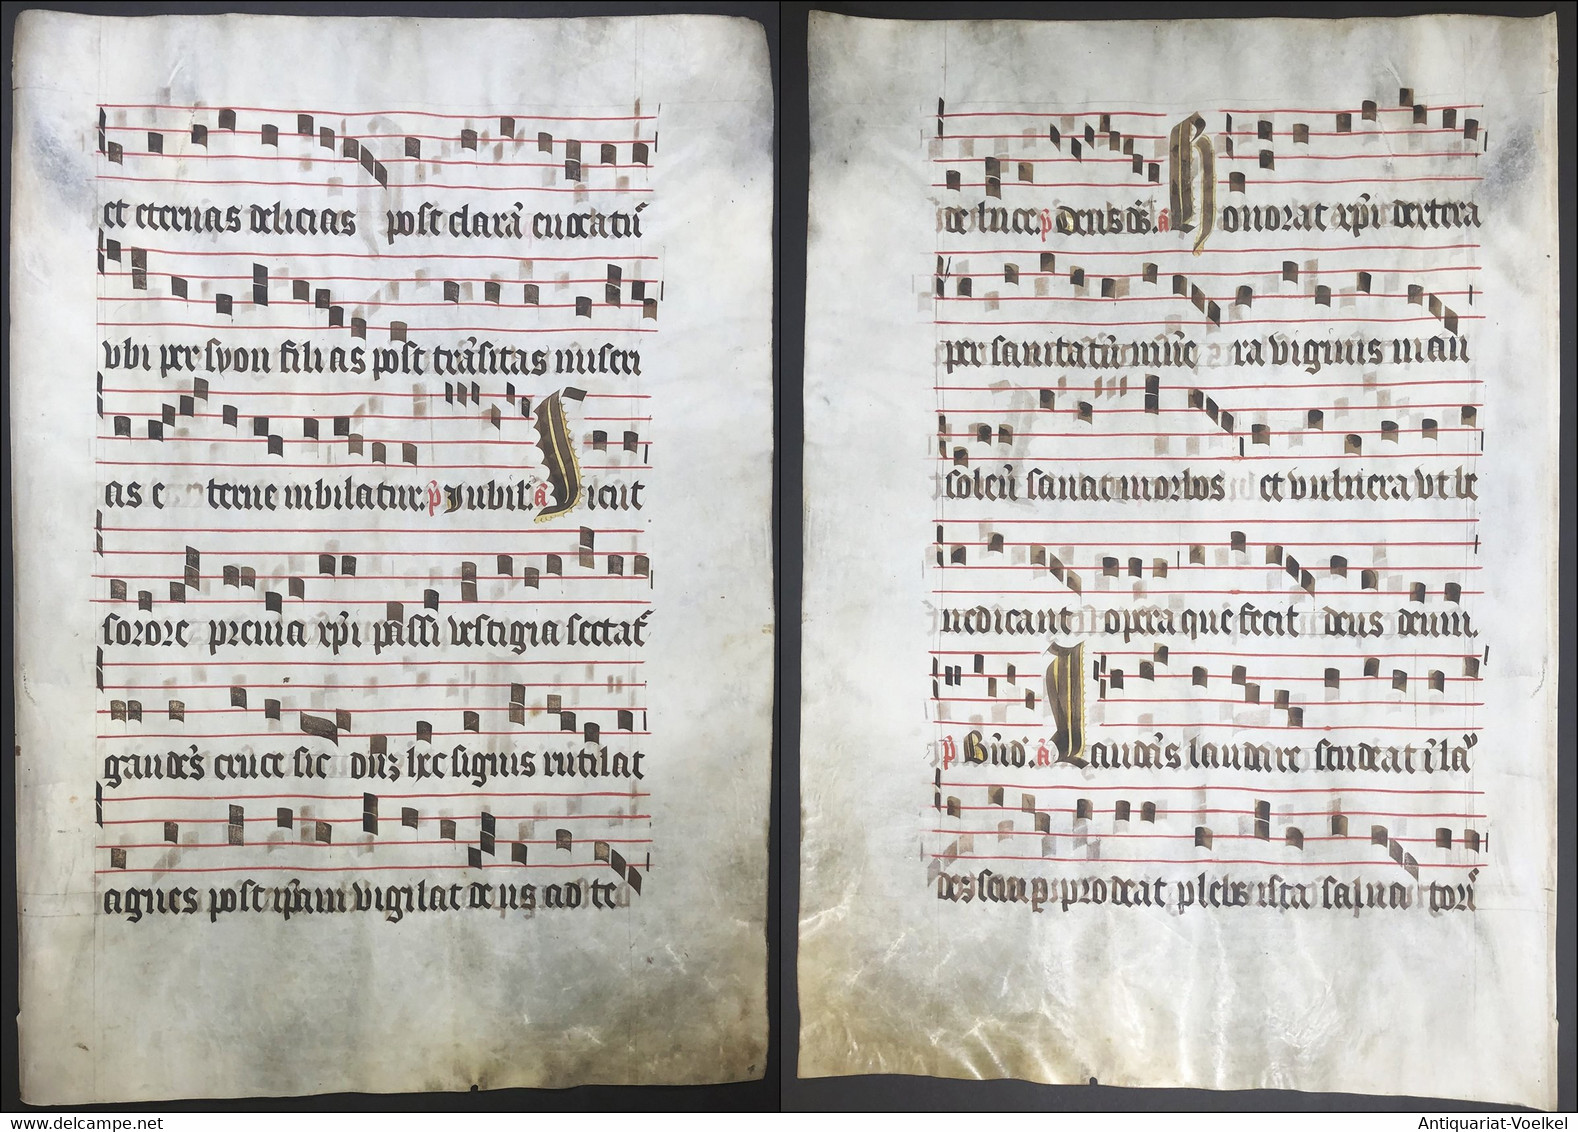 et eternas delicias post clarā euocatū
vbi per syon filias post trāsitas miseri
as e terne iubilatur. p̄ Jubil'. ā Sicut
sorore premia xp̄i passi vestigia sectat᷑
gaudēs cruce sic dū hec signis rutilat
agnes post ip̄am vigilat de iis ad te
de luce. p̄ Deus ds̄. ā Honorat xp̄i dextera
per sanitatū mūe ra virginis mau
soleū sanat morbos et vulnera vt be
nedicant opera que fecit deus deum.
p̄ Bn̄d'. ā Laudēs laudare studeat ī la
prodeat plebs ista saluatori
Antiquariat-Voelkel